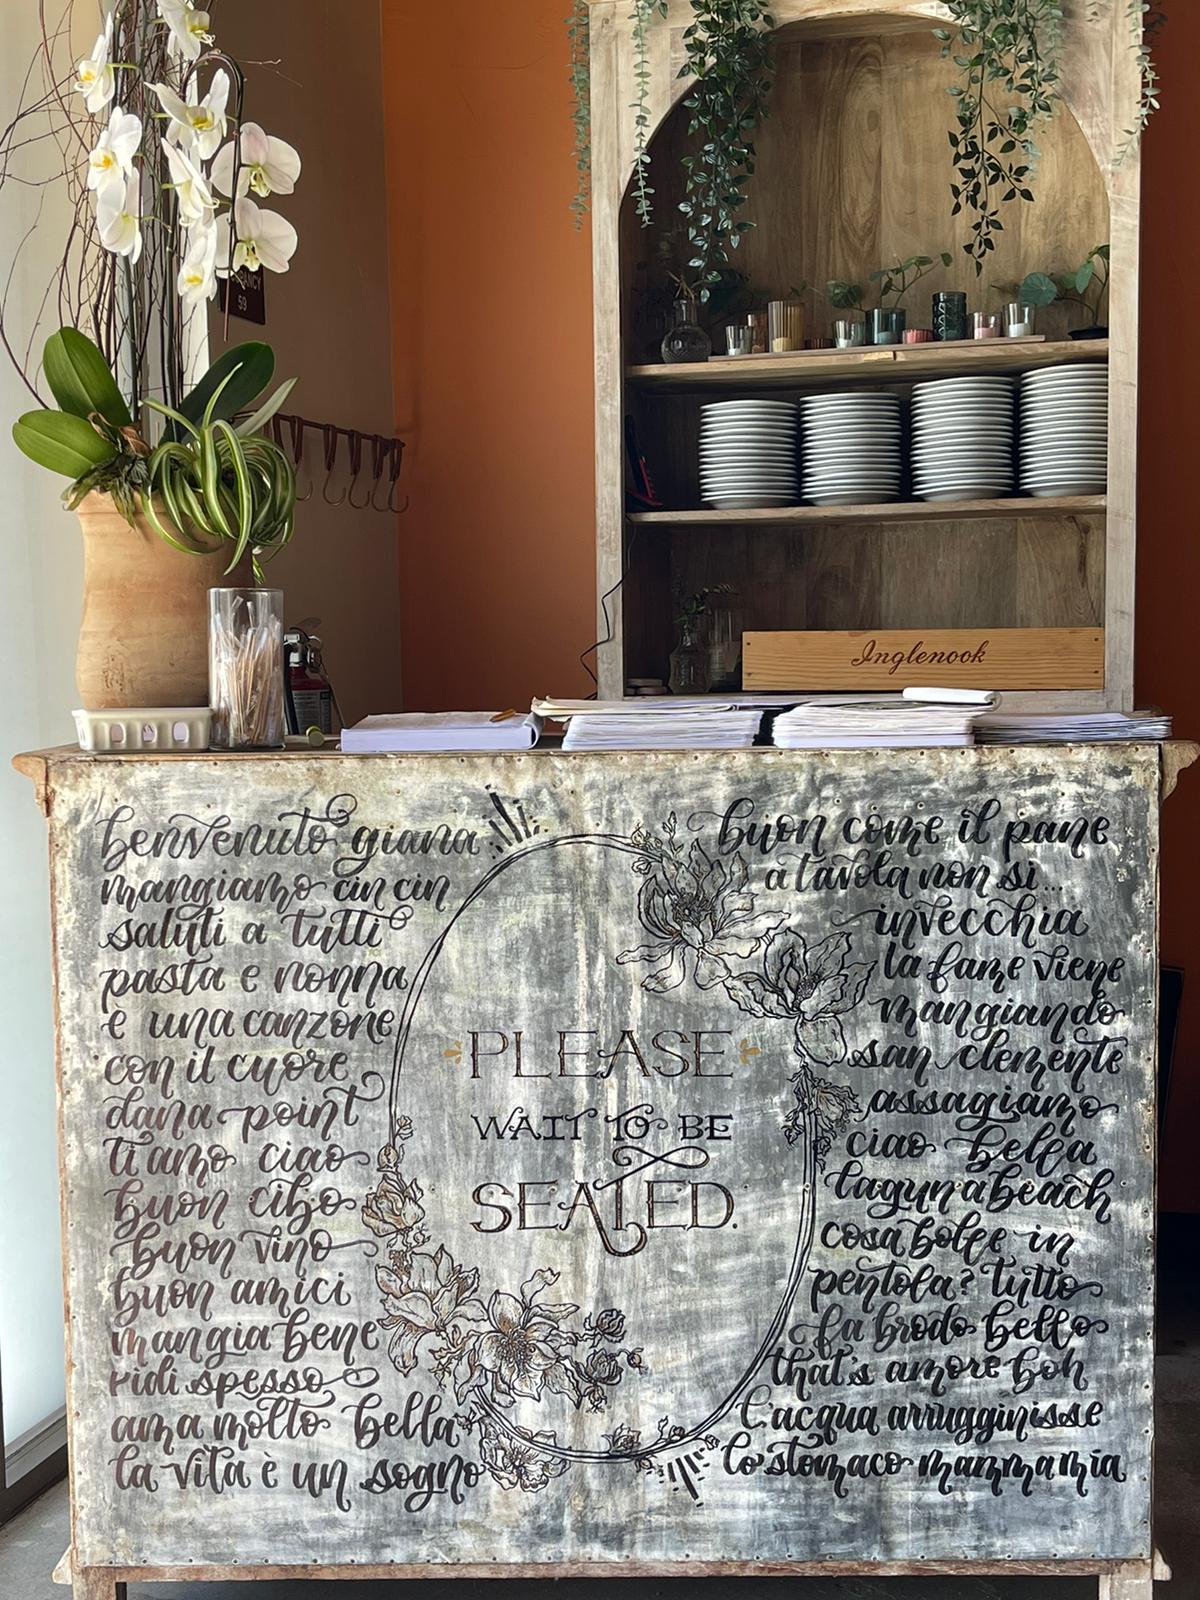 NCY
59
Inglenook
benvenuto giana
mangiamo cin cin
saluti a tutti
pasta e nonna
e una canzone
con il cuore
dana point
ti amo ciao
buon cibo
buon vino
buon amici
mangia bene
ridi spesso
ama molto bella
la vita è un sogno
PLEASE
WAIT TO BE
SEATED.
buon come il pane
a tavola non si...
invecchia
la fame viene
mangiando
san clemente
assagiamo
ciao bella
laguna beach
cosa bolle in
pentola? tutto
fa brodo bello
that's amore boh
l'acqua arrugginisse
lo stomaco mamma mia